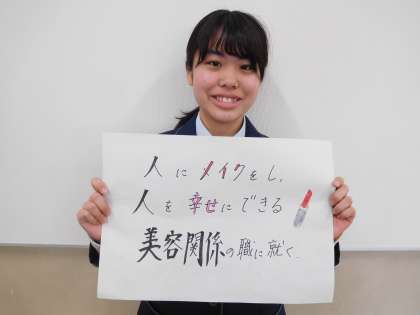 人にメイクをし、
人を幸せにできる
美容関係の職に就く。